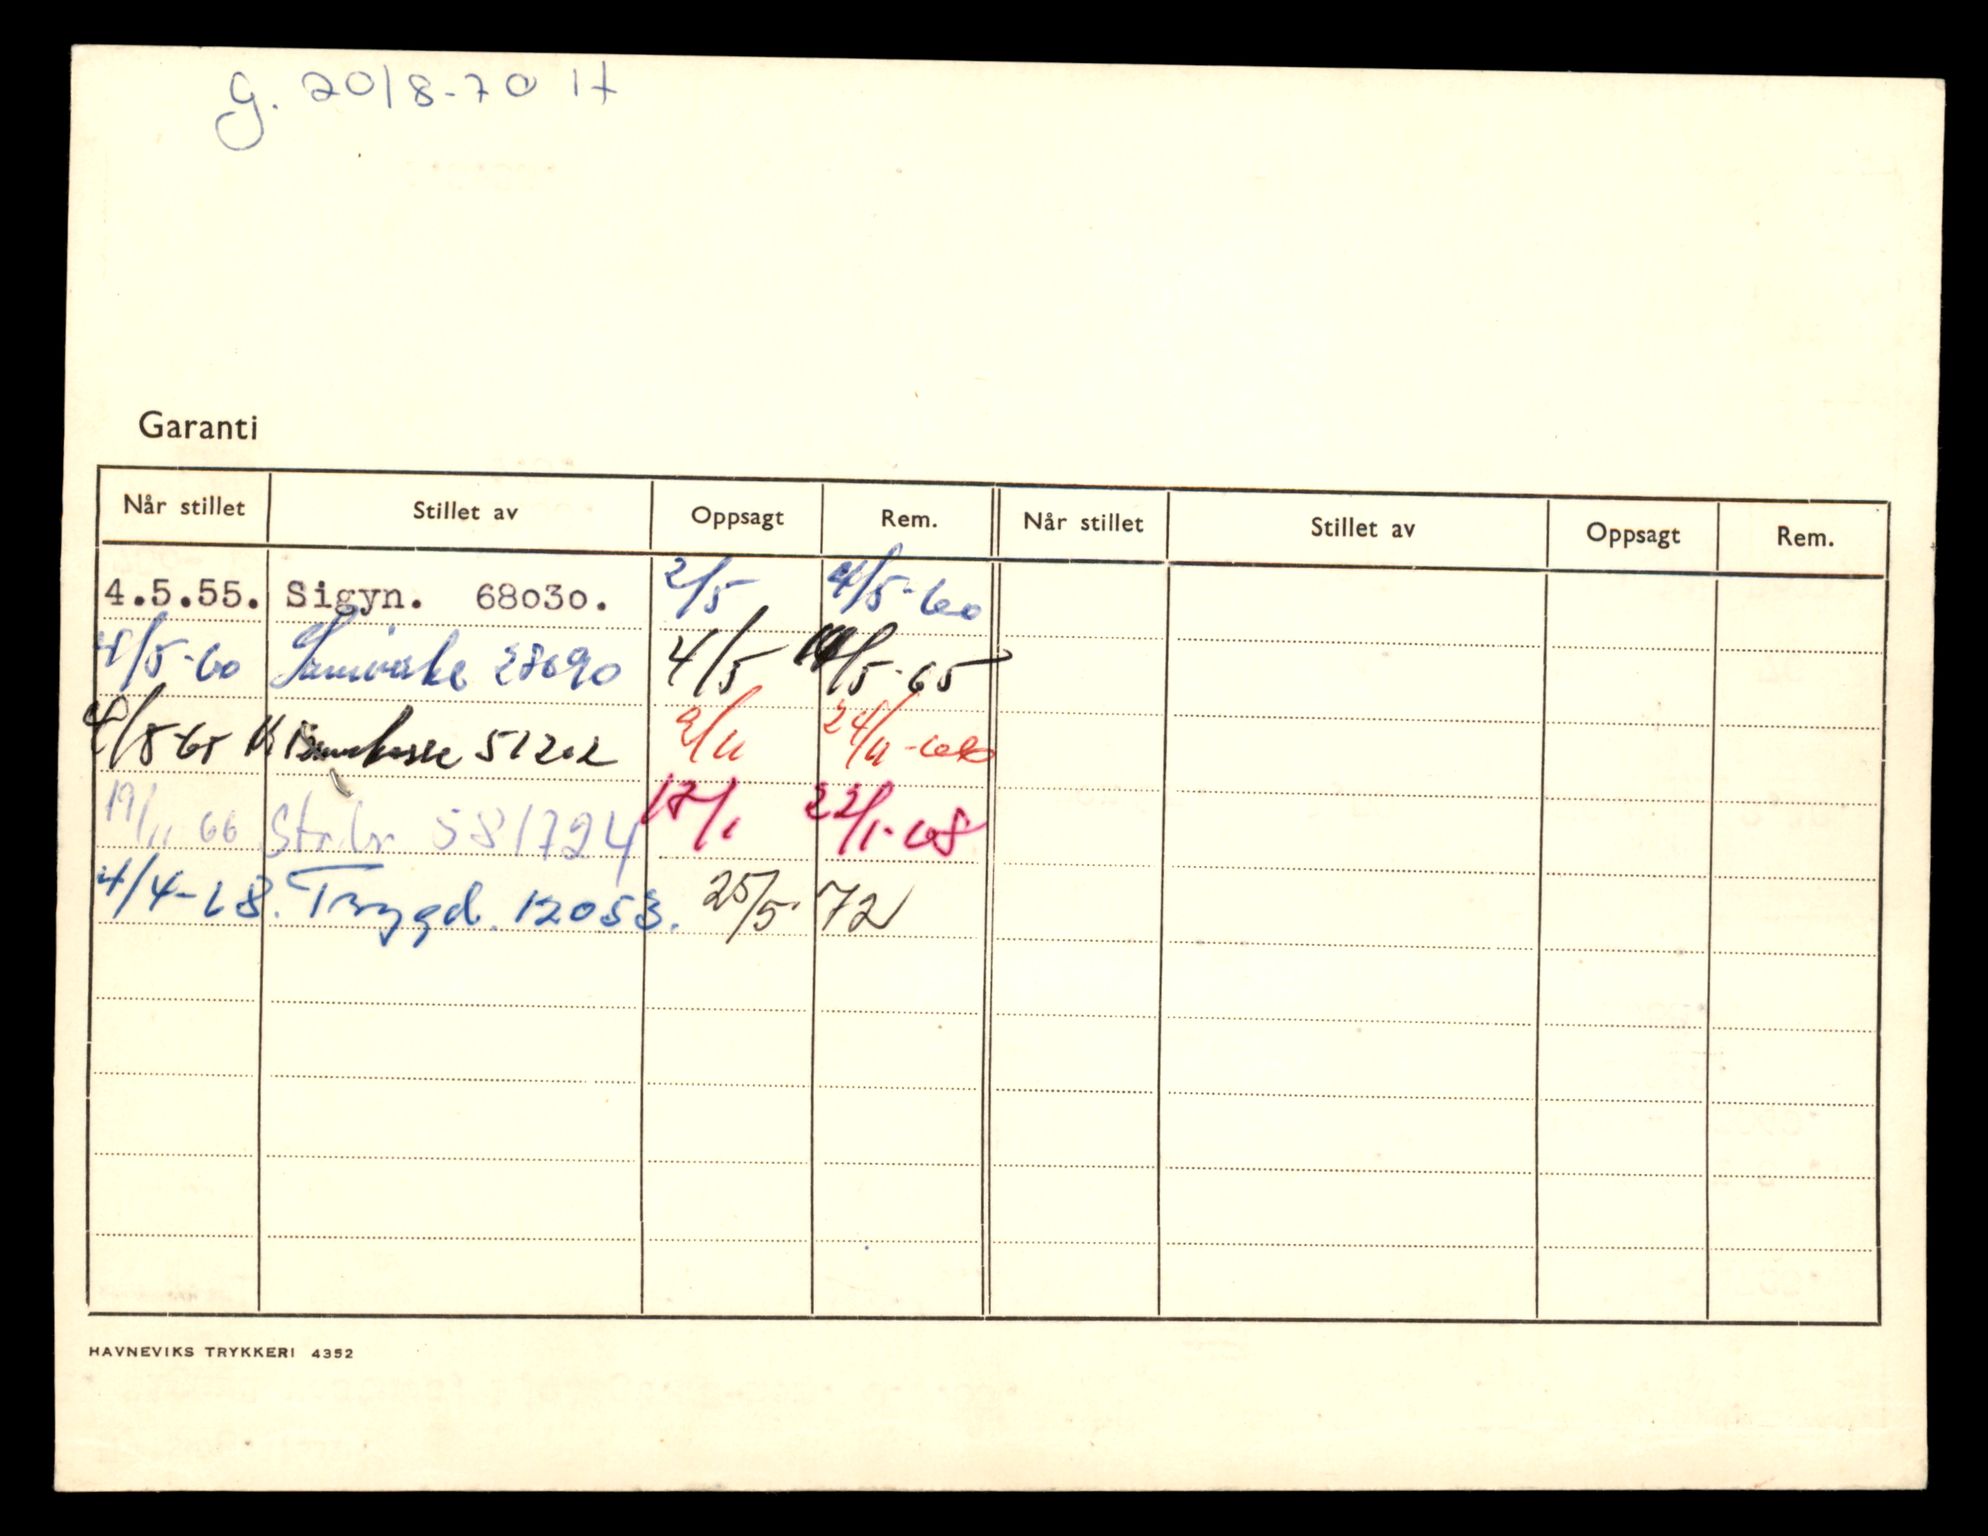 g. 20/8-70 It
Garanti
Når stillet Stillet av Oppsagt Rem. Når stillet Stillet av Oppsagt Rem.
4.5.55. Sigyn. 68030. 2/5 4/5-60
4/5-60 Samvirke 28690 4/5 4/5-65
4/5-65 51202 9/11 24/11-66
19/11 66 Storbr 581724 17/1 22/1-68
4/4-68. Trygd. 12053. 25/5- 72
HAVNEVIKS TRYKKERI 4352